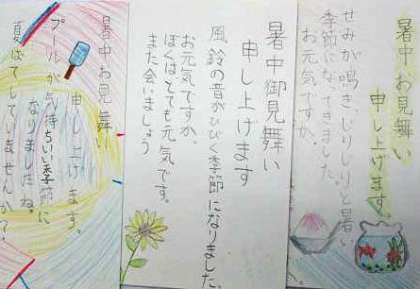 暑中お見舞い
申し上げます。
せみが鳴きじりじりと暑い
季節になってきました。
お元気ですか。
暑中御見舞い
申し上げます
風鈴の音がひびく季節になりました。
お元気ですか。
ぼくはとても元気です。
また会いましょう
暑中お見舞い
申し上げます。
プールが気持ちいい季節に
なりましたね。
夏ばてしていませんか？